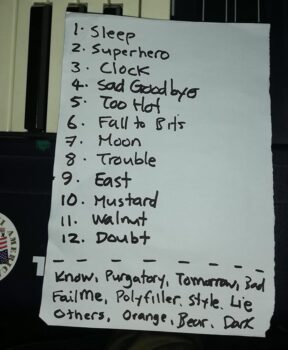 1. Sleep
2. Superhero
3. Clock
4. Sad Goodbye
5. Too Hot
6. Fall to Bits
7. Moon
8. Trouble
9. East
10. Mustard
11. Walnut
12. Doubt
Know, Purgatory, Tomorrow, Bad
Fail Me, Polyfiller, Style, Lie
Others, Orange, Bear, Dark